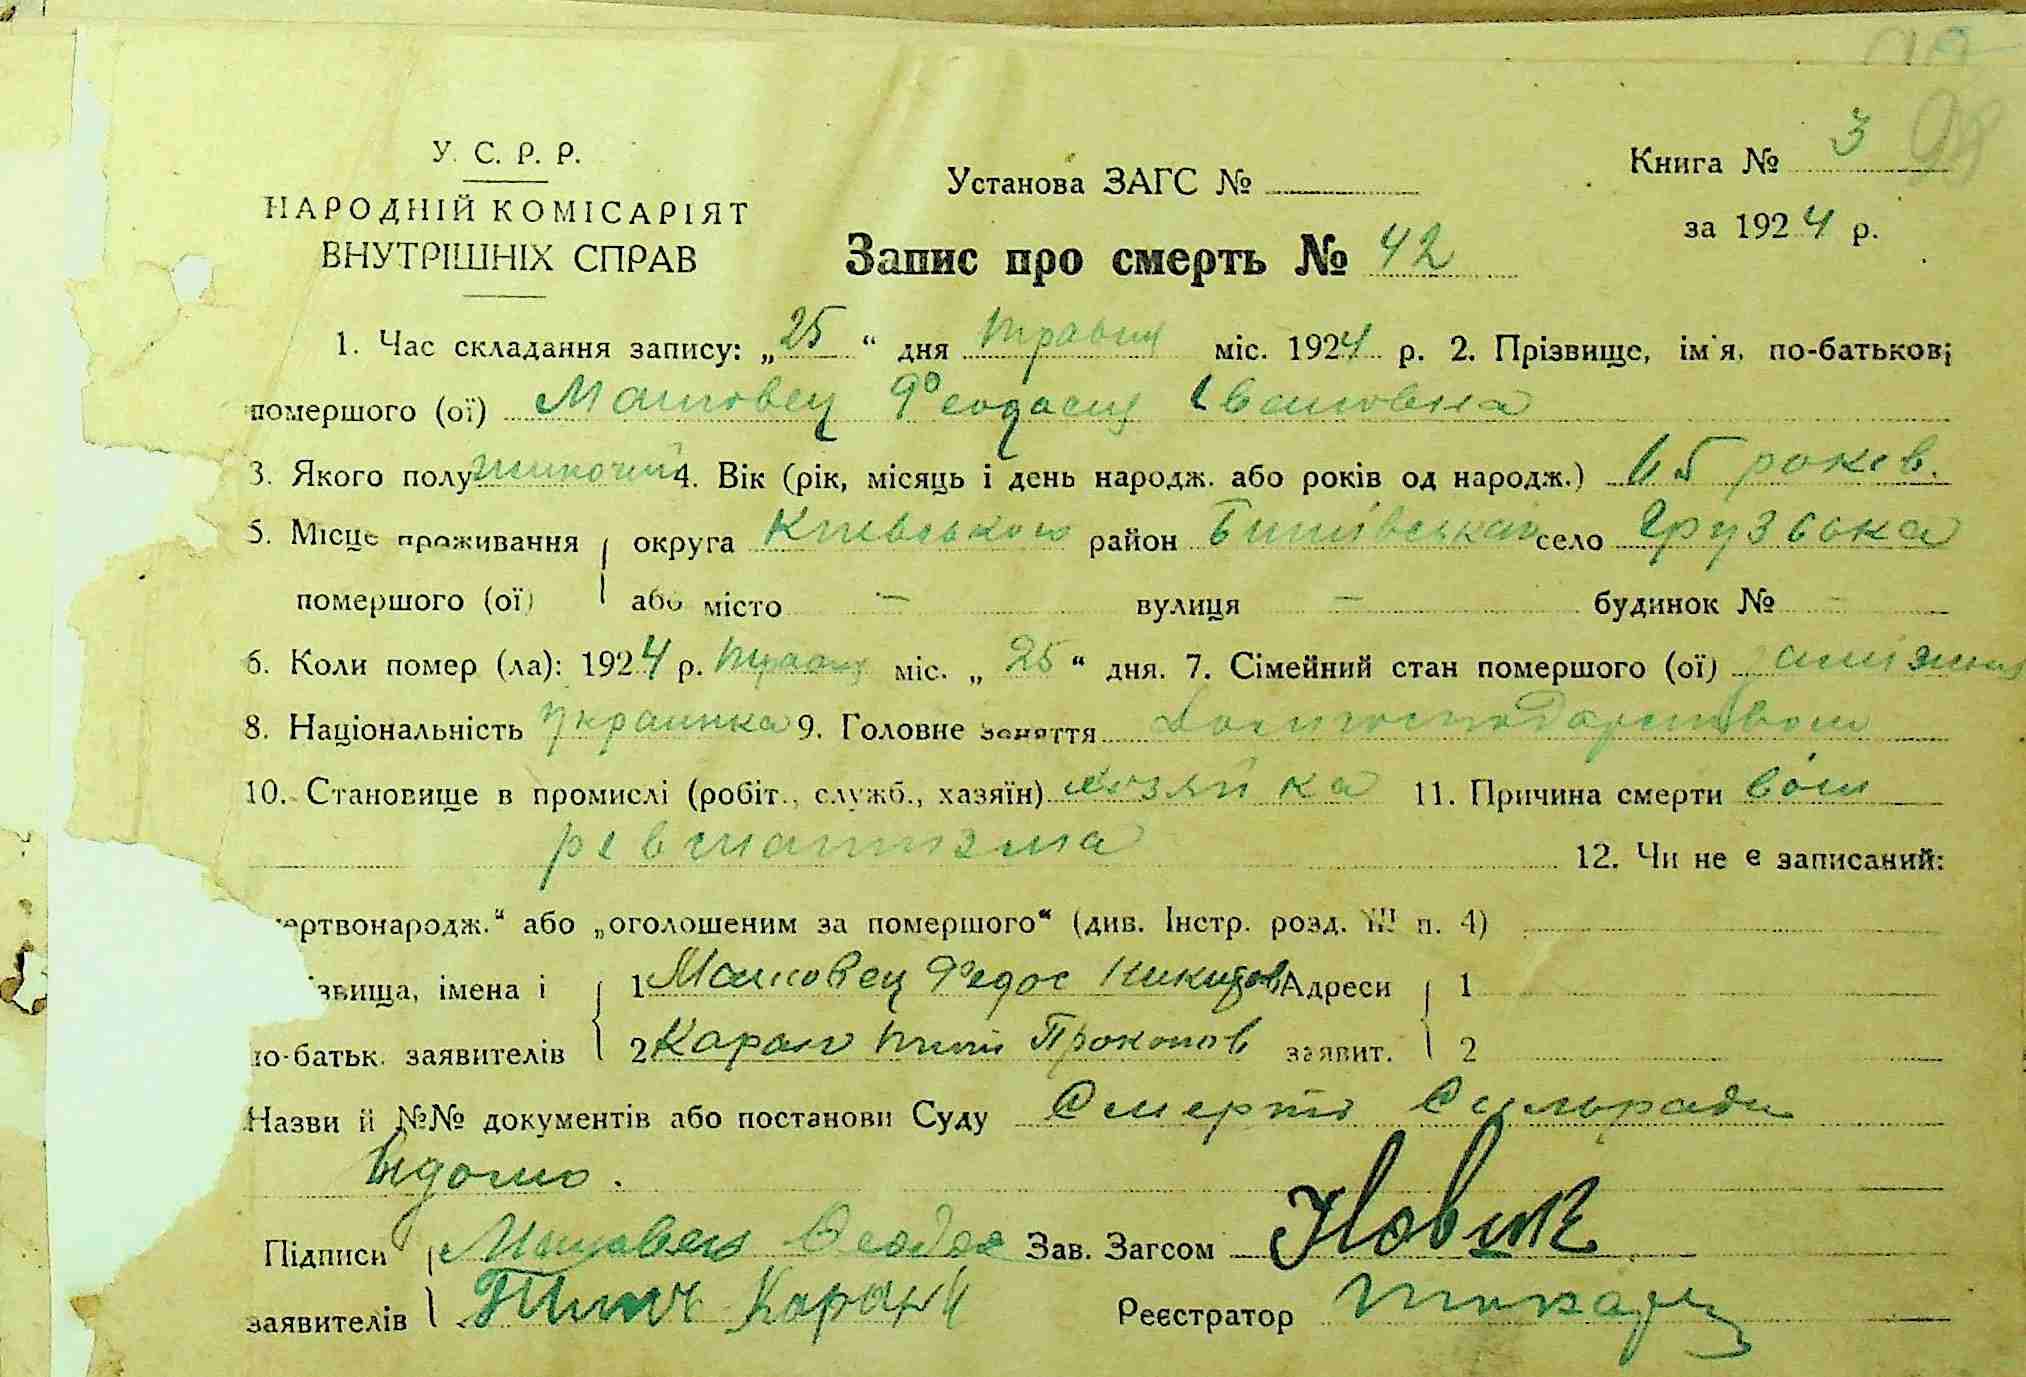 98
У. С. Р. Р.
НАРОДНІЙ КОМІСАРІЯТ
ВНУТРІШНІХ СПРАВ
Установа ЗАГС №
Книга № 3
за 1924 р.
Запис про смерть № 42
1. Час складання запису: „25“ дня травня міс. 1924 р. 2. Прізвище, ім'я, по-батькові
помершого (ої) Феодасия Івановна
3. Якого полу жиночий 4. Вік (рік, місяць і день народж. або років од народж.) 65 роков.
5. Місце проживання округа Киевського район село Грузська
помершого (ої) або місто — вулиця — будинок № —
6. Коли помер (ла): 1924 р. травня міс. „25“ дня. 7. Сімейний стан помершого (ої) заміжня
8. Національність Украинка 9. Головне заняття
10. Становище в промислі (робіт., служб., хазяїн) хозяйка 11. Причина смерти від
ревматизма 12. Чи не є записаний:
ертвонародж.“ або „оголошеним за помершого“ (див. Інстр. розд. III п. 4)
звища, імена і 1 Федос Никитов Адреси 1
по-батьк. заявителів 2 Прокопов заявит. 2
Назви й №№ документів або постанови Суду Смерть Сильради
відомо.
Підписи Феодос Зав. Загсом Новик
заявителів Реєстратор